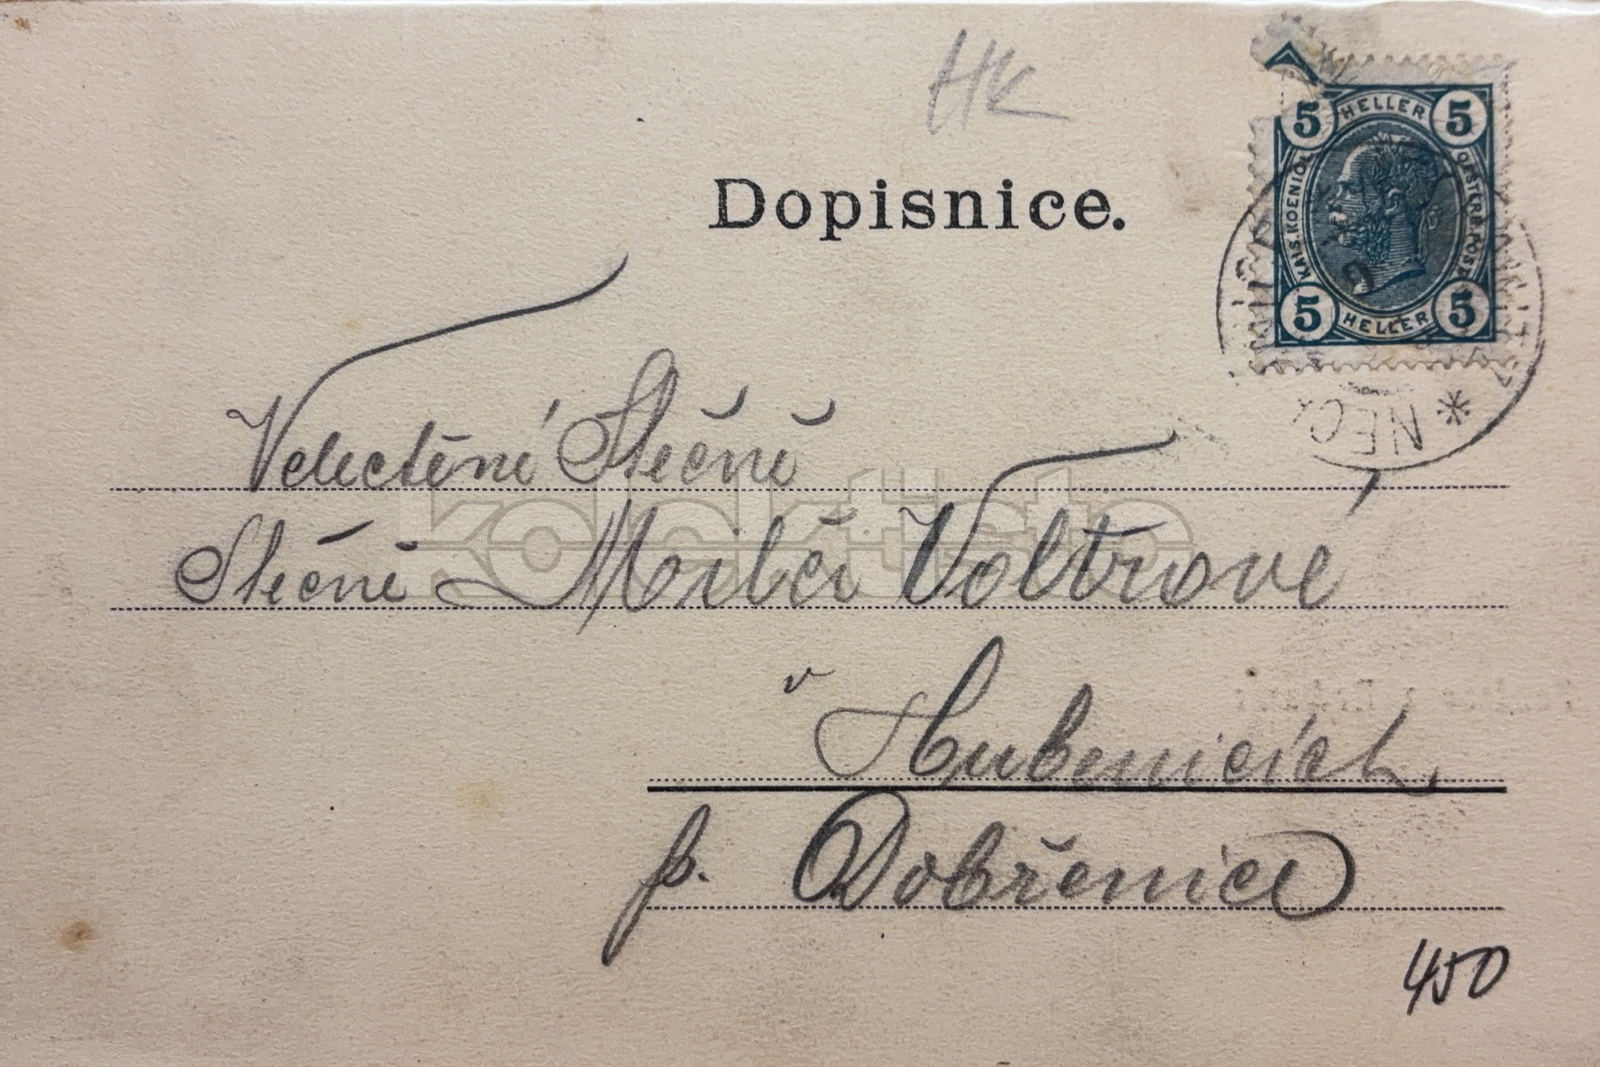 HK
Dopisnice.
5 HELLER 5
KAIS. KOENIGL. OESTERR. POST
5 HELLER 5
* NEC
Velectěné Slečně
Slečně Milči Voltrově
v Hubenicích
p. Dobřenice
450
kolektiste